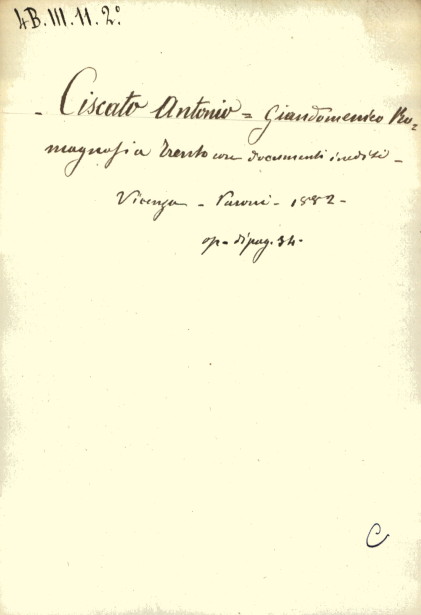 4B.III.11.2º
- Ciscato Antonio = Giandomenico Ro=
magnosi a Trento con documenti inediti -
Vicenza - Paroni - 1882 -
op - di pag. 34 -
C